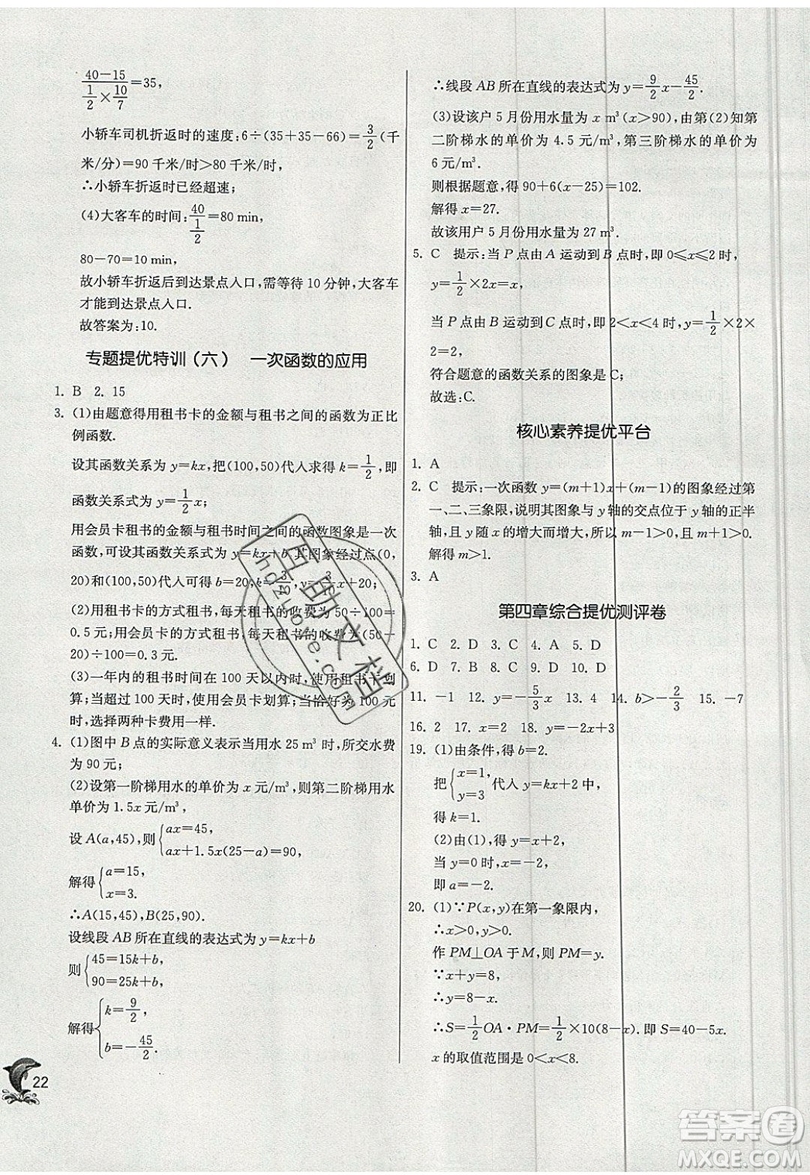 40－15
1/2×10/7
＝35,
小轿车司机折返时的速度：6÷(35＋35－66)＝3/2(千
米/分)＝90 千米/时＞80 千米/时.
∴小轿车折返时已经超速；
(4)大客车的时间：40/(1/2)＝80 min,
80－70＝10 min,
故小轿车折返后到达景点入口，需等待 10 分钟，大客车
才能到达景点入口.
故答案为：10.
专题提优特训（六） 一次函数的应用
1. B 2. 15
3. (1)由题意得用租书卡的金额与租书之间的函数为正比
例函数.
设其函数关系为 y＝kx，把(100,50)代入求得 k＝1/2，即
函数关系为 y＝1/2x；
用会员卡租书的金额与租书时间之间的函数图象是一次
函数，可设其函数关系为 y＝kx＋b，其图象过点(0,
20)(100,50)代入可得 y＝3/10x＋20；
(2)用租书卡的方式租书，每天租书的收费为 50÷100＝
0.5 元；用会员卡的方式租书，每天租书的收费为(50－
20)÷100＝0.3 元.
(3)一年内的租书时间在 100 天以内时，用租书卡划
算；当超过 100 天时，用会员卡划算；当为 100 天时，
选择两种卡费用一样.
4. (1)图中 B 点的实际意义表示当用水 25 m³ 时，所交水费
为 90 元；
(2)设第一阶梯用水的单价为 x 元/m³，则第二阶梯用水
单价为 1.5x 元/m³，
设 A(a,45)，则{ax＝45,
ax＋1.5x(25－a)＝90,
解得{a＝15,
x＝3.
∴A(15,45),B(25,90).
设线段 AB 所在直线的表达式为 y＝kx＋b
则{45＝15k＋b,
90＝25k＋b,
解得{k＝9/2,
b＝－45/2.
22
∴线段 AB 所在直线的表达式为 y＝9/2x－45/2.
(3)设该户 5 月份用水量为 x m³(x＞90)，由第(2)知第
二阶梯水的单价为 4.5 元/m³，第三阶梯水的单价为
6 元/m³.
则根据题意，得 90＋6(x－25)＝102.
解得 x＝27.
故该用户 5 月份用水量为 27 m³.
5. C 提示：当 P 点由 A 运动到 B 点时，即 0≤x≤2 时，
y＝1/2×2x＝x,
当 P 点由 B 运动到 C 点时，即 2＜x＜4 时，y＝1/2×2×
2＝2,
符合题意的函数关系的图象是 C；
故选：C.
核心素养提优平台
1. A
2. C 提示：一次函数 y＝(m＋1)x＋(m－1)的图象经过第
一、二、三象限，说明图象与 y 轴的交点位于 y 轴的正半
轴，且 y 随 x 的增大而增大，所以 m－1＞0,m＋1＞0.
解得 m＞1.
3. A
第四章综合提优测评卷
1. C 2. D 3. C 4. A 5. D
6. D 7. B 8. C 9. D 10. C
11. －1 12. y＝－5/3x 13. 4 14. b＞－2/3 15. －7
16. 2 17. x＝2 18. y＝－2x＋3
19. (1)由条件，得 b＝2.
把{x＝1,
y＝3 代入 y＝kx＋2 中，
得 k＝1.
(2)由(1)，得 y＝x＋2.
当 y＝0 时，x＝－2，
即 a＝－2.
20. (1)∵P(x,y)在第一象限内，
∴x＞0,y＞0.
作 PM⊥OA 于 M，则 PM＝y.
∵x＋y＝8,
∴y＝8－x.
∴S＝1/2OA·PM＝1/2×10(8－x). 即 S＝40－5x.
x 的取值范围是 0＜x＜8.
百助文档
答案卷
MXQE.COM